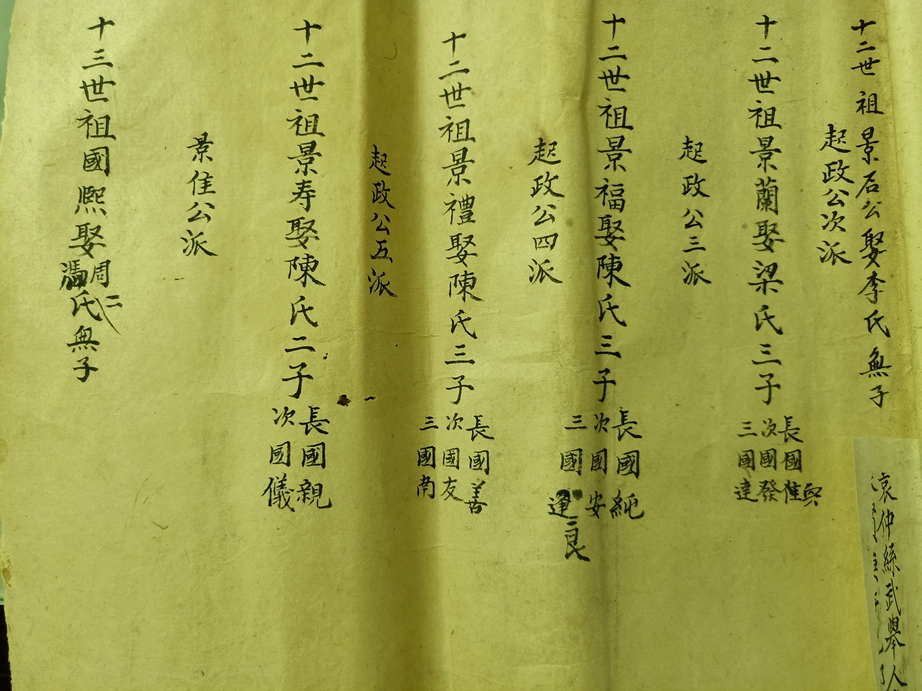 十二世祖景石公娶李氏無子
起政公次派
十二世祖景蘭娶梁氏三子
長國佳
次國發
三國達
起政公三派
十二世祖景福娶陳氏三子
長國純
次國安
三國運
良
起政公四派
十二世祖景禮娶陳氏三子
長國善
次國友
三國南
起政公五派
十二世祖景寿娶陳氏二子
長國親
次國儀
景佳公派
十三世祖國熙娶周馮二氏無子
哀仲絲武舉人